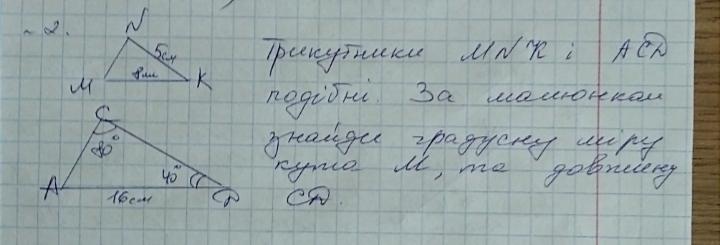 2.
N
5см
8см
M K
Трикутники MNK і ACD
подібні. За малюнком
знайди градусну міру
кута M, та довжину
CD.
C
80°
40°
A D
16см